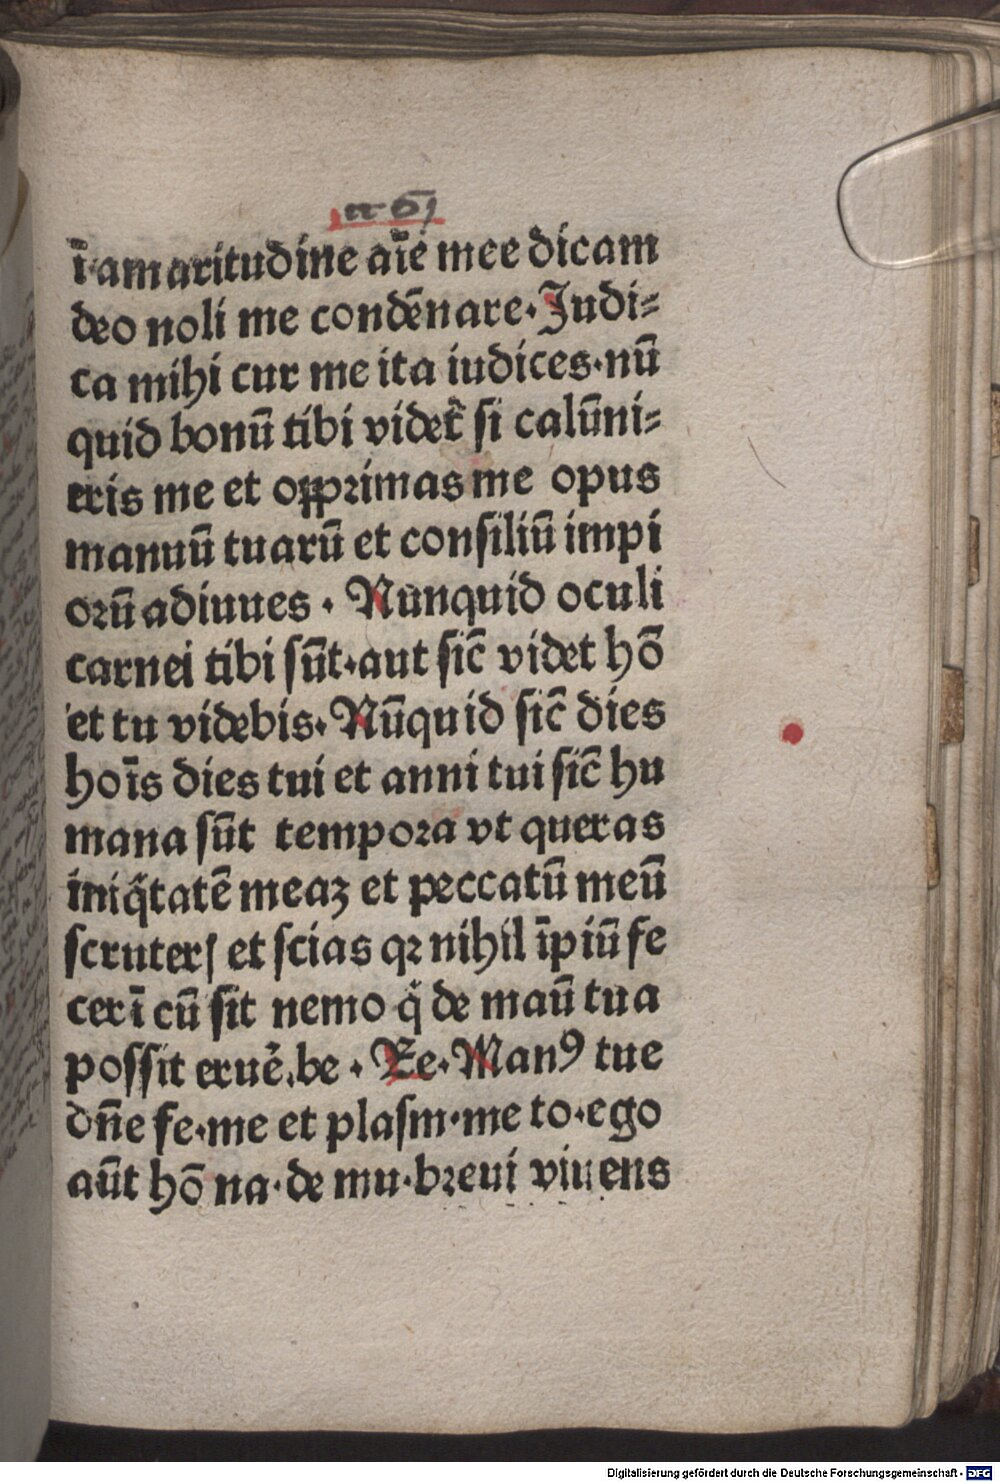 ī amaritudine aīe mee dicam
deo noli me condēnare. Judi⸗
ca mihi cur me ita iudices. nū
quid bonū tibi videt̉ si calūni⸗
eris me et opprimas me opus
manuū tuarū et consiliū impi
orū adiuues. Nunquid oculi
carnei tibi sūt. aut sic̄ videt hō
et tu videbis. Nūquid sic̄ dies
hoīs dies tui et anni tui sic̄ hu
mana sūt tempora vt queras
iniq̇tatē meaz et peccatū meū
scruter⌡ et scias qꝛ nihil īpiū fe
cerī cū sit nemo q̇ de maū tua
possit eruē. be. Re. Manꝰ tue
dn̄e fe. me et plasm. me to. ego
aūt hō na. de mu. breui viuens
Digitalisierung gefördert durch die Deutsche Forschungsgemeinschaft - DFG